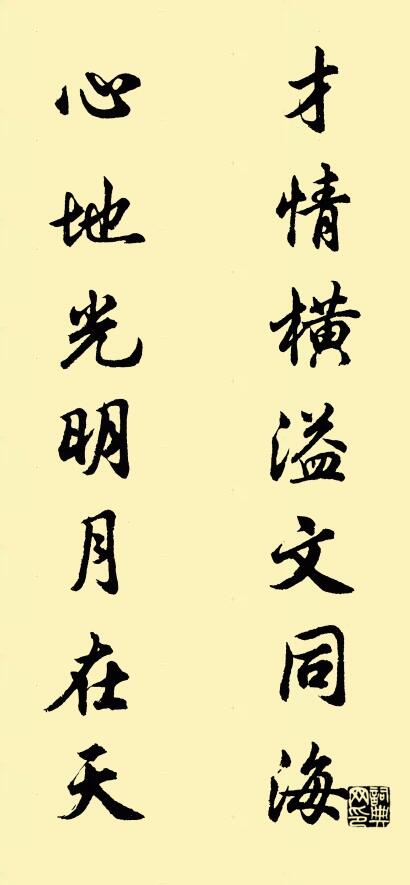 才情横溢文同海
心地光明月在天
詞典网印